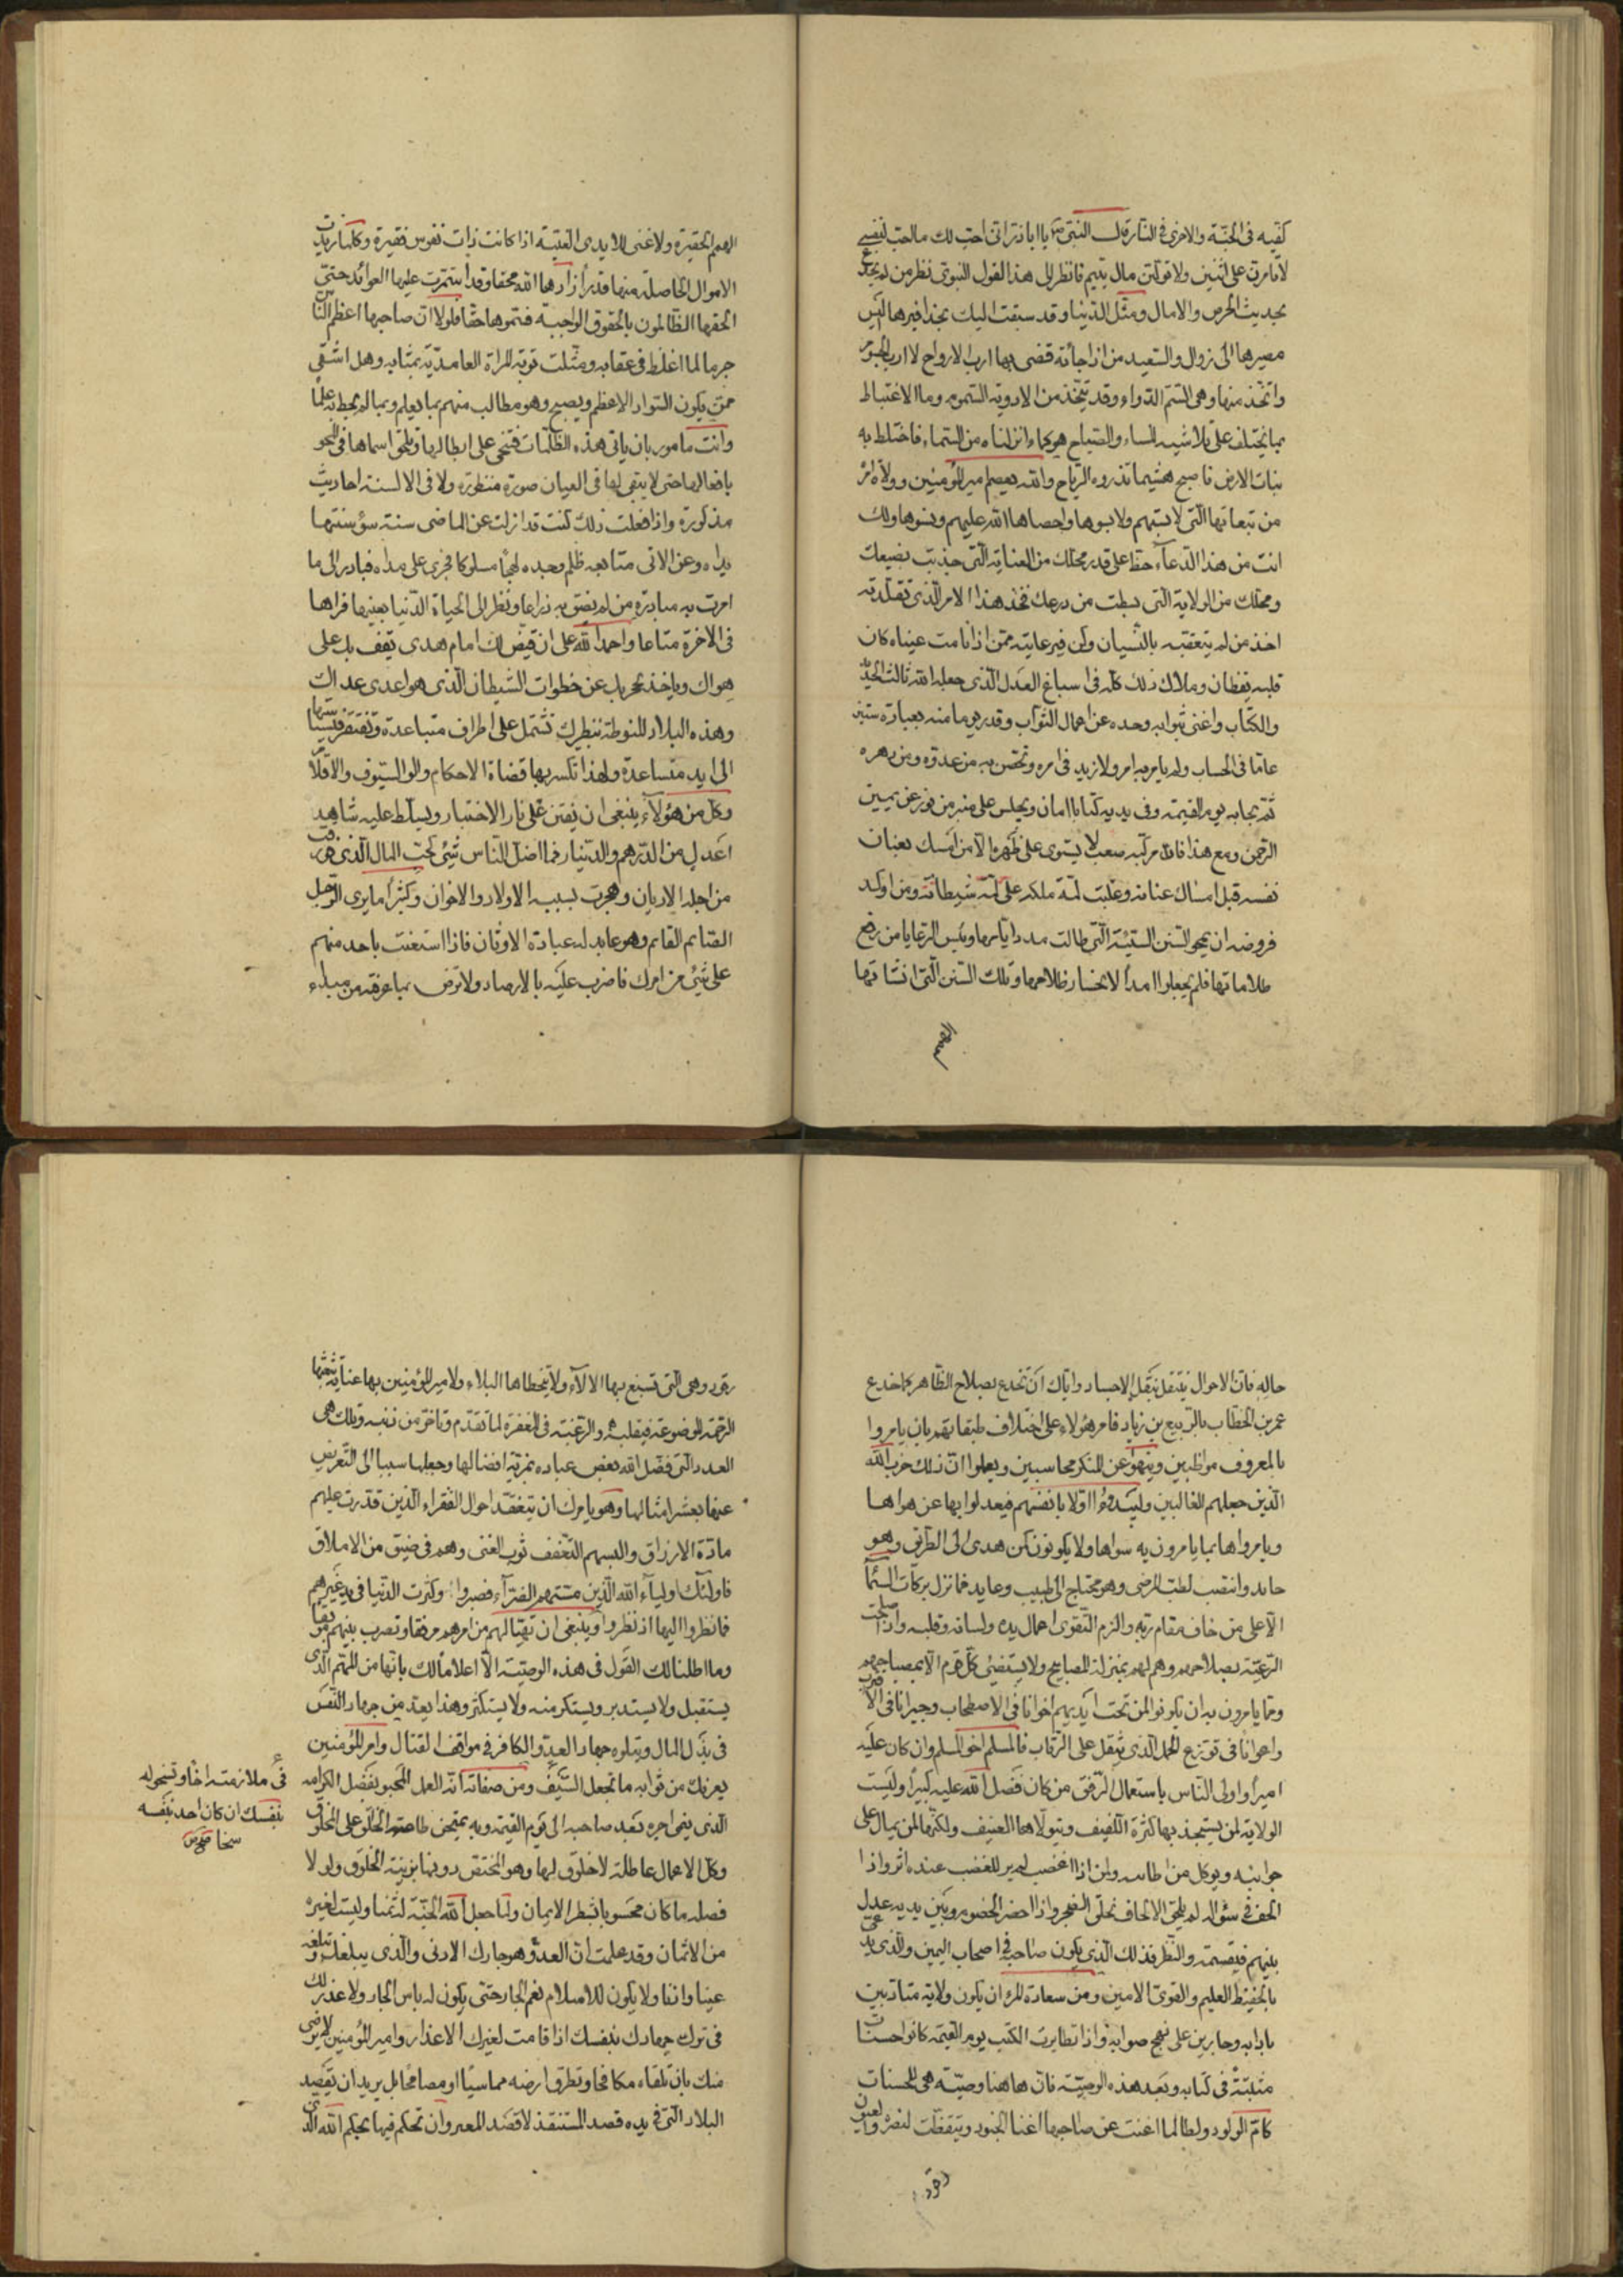 كفّيه فى الجنّة والاخرى فى النّار قال النّبىّ ص يا اباذر انّى احبّ لك ما احبّ لنفسى
لا تامرنّ على اثنين ولا تولّينّ مال يتيم فانظر الى هذا القول النبوىّ نظر من لم يخدع
بحديث الحرص والامال ومثّل الدّنيا وقد سيقت اليك بحذافيرها اليس
مصيرها الى زوال والسّعيد من اذا جاءته قضى بها ارب الارواح لا ارب الجسوم
واتّخذ منها وهى السّمّ الدّواء وقد يتّخذ من الادوية السّموم وما الاغتباط
بما يختلف على تلاشيه المساء والصّباح هو كماء انزلناه من السّماء فاختلط به
نبات الارض فاصبح هشيما تذروه الرّياح والله يعصم امير المؤمنين وولاة امره
من تبعاتها الّتى لابستهم ولابسوها واحصاها الله عليهم ونسوها ولك
انت من هذا الدّعاء حظّ على قدر محلّك من العناية الّتى جذبت بضبعك
ومحلّك من الولاية الّتى بسطت من درعك فخذ هذا الامر الّذى تقلّدته
اخذ من لم يتعقّبه بالنّسيان وكن فى رعايته ممّن اذا نامت عيناه كان
قلبه يقظان وملاك ذلك كلّه فى اسباغ العدل الّذى جعله الله ثالث الحديد
والكتاب واغنى بثوابه وحده عن اعمال الثّواب وقدر يوما منه بعبادة ستين
عاما فى الحساب ولم يامر به امر الا زيد فى امره وتحصّن به من عدوّه ومن دهره
ثمّ يجاء به يوم القيمة وفى يديه كتابا امان ويجلس على منبر من نور عن يمين
الرّحمن ومع هذا فانّه مركب صعب لا يستوى على ظهره الّا من امسك بعنان
نفسه قبل امساك عنانه وغلبت لمّة ملكه على لمّة شيطانه ومن اوكد
فروضه ان يمحو السّنن السّيّئة الّتى طالت مدد ايّامها ويئس الرّعايا من رفع
ظلاماتها فلم يجعلوا امدا لانحسار ظلامها وتلك السّنن الّتى انشاتها
الهمم
الهمم الحقيرة ولا غنى للايدى الغنيّة اذا كانت ذات نفوس فقيرة وكلّما زيدت
الاموال الحاصلة منها قدرا زادها الله محقا وقد استمرّت عليها العوائد حتّى
الحقها الظّالمون بالحقوق الواجبة فسموها حقّا فلولا انّ صاحبها اعظم النّاس
جرما لما اغلظ فى عقابه ومثّلت توبة المراة الغامديّة بمثابه وهل اشقى
ممّن يكون السّواد الاعظم ويصبح وهو مطالب منهم بما يعلم وبما لم يحط به علما
وانت مامور بان ياتى هذه الظّلمات فتنحى على ابطالها وتلحق اسماءها فى المحو
بافعالها حتّى لا يبقى لها فى العيان صورة منظورة ولا فى الالسنة احاديث
مذكورة واذا فعلت ذلك كنت قد ازلت عن الماضى سنة سؤ سنّتها
يداه وعن الاتى متابعة ظلم وجده نهجا مسلوكا فجرى على مداه فبادر الى ما
امرت به مبادرة من لم يضق به ذراعا ونظر الى الحياة الدّنيا بعينه فراها
فى الاخرة متاعا واحمد الله على ان قيّض لك امام هدى يقف بك على
هداك وياخذ بحجزتك عن خطوات الشّيطان الّذى هو اعدى عداك
وهذه البلاد المنوطة بنظرك تشتمل على اطراف متباعدة وتفتقر فى سياستها
الى ايد متساعدة ولهذا تكسر بها قضاة الاحكام واولو السّيوف والاقلام
وكلّ من هؤلاء ينبغى ان يفتن على نار الاختبار ويسلّط عليه شاهد
اعدل من الدّرهم والدّينار فما اضلّ النّاس شئ كحبّ المال الّذى فرقت
من اجله الاديان وهجرت بسببه الاولاد والاخوان وكثيرا ما يرى الرّجل
الصّائم القائم وهو عابد له عبادة الاوثان فاذا استعنت باحد منهم
على شئ من امرك فاضرب عليه بالارصاد ولا ترض بما عرفته من مبدء
حاله فانّ الاحوال تتنقل تنقل الاجساد وايّاك ان تخدع بصلاح الظّاهر كما خدع
عمر بن الخطّاب بالرّبيع بن زياد فامر هؤلاء على اختلاف طبقاتهم بان يامروا
بالمعروف مواظبين وينهوا عن المنكر محاسبين ويعلموا انّ ذلك حزب الله
الّذين جعلهم الغالبين وليبدؤا اوّلا بانفسهم فيعدلوا بها عن هواها
ويامروها بما يامرون به سواها ولا يكونون كمن هدى الى الطّريق وهو
حائد وانتصب لطبّ المرضى وهو محتاج الى طبيب وعايد فما تنزل بركات السّماء
الّا على من خاف مقام ربّه والزم التّقوى اعمال يده ولسانه وقلبه واذا صلحت
الرّعيّة بصلاحهم وهم لهم بمنزلة المصابيح ولا يستضئ كلّ قوم الّا بمصباحهم
وممّا يامرون به ان يكونوا لمن تحت ايديهم اخوانا فى الاصطحاب وجيرانا فى الاقتراب
واعوانا فى توزّع الحمل الّذى يثقل على الرّقاب فالمسلم اخو المسلم وان كان عليه
اميرا واولى النّاس باستعمال الرّفق من كان فضل الله عليه كبيرا وليست
الولاية لمن يستجدّ بها كثرة اللّفيف ويتولّاها العنيف ولكنّها لمن يمال على
جوانبه ويوكل من اطائبه ولمن اذا اغضب لم ير للغضب عنده اثر واذا
الحف فى سؤاله لم يلق الالحاف بخلق الضّجر واذا حضر الخصوم بين يديه عدل
بينهم فى قسمة والنّظر فذلك الّذى يكون صاحبه فى اصحاب اليمين والّذى يدعى
بالحفيظ العليم والقوىّ الامين ومن سعادة المرء ان يكون ولاته متادّبين
بادابه وجارين على نهج صوابه واذا تطايرت الكتب يوم القيمة كانوا حسنات
مثبتة فى كتابه وبعد هذه الوصيّة فانّ هاهنا وصيّة هى للحسنات
كالامّ الولود ولطالما اغنت عن صاحبها اغناء الجنود وتيقّظت لنصره والعيون
رقود
رقود وهى الّتى تسبغ بها الالاء ولا يتخطاها البلاء ولامير المؤمنين بها عناية تبعثها
الرّحمة الموضوعة فى قلبه والرّغبة فى المغفرة لما تقدّم وتاخّر من ذنبه وتلك هى
الصدقة الّتى فضّل الله بعض عباده بمزيّة افضالها وجعلها سببا الى التّعويض
عنها بعشر امثالها وهو يامرك ان تتفقّد احوال الفقراء الّذين قدرت عليهم
مادّة الارزاق والبسهم التّعفّف ثوب الغنى وهم فى ضيق من الاملاق
فاولئك اولياء الله الّذين مسّتهم الضّرّاء فصبروا وكثرت الدّنيا فى يد غيرهم
فما نظروا اليها اذ نظروا وينبغى ان تهيّا لهم من امرهم مرفقا وتضرب بينهم وبين الفقر موبقا
وما اطلنا لك القول فى هذه الوصيّة الّا اعلاما لك بانّها من المهمّ الّذى
يستقبل ولا يستدبر ويستكثر منه ولا يستكثر وهذا يعدّ من جهاد النّفس
فى بذل المال ويتلوه جهاد العدوّ الكافر فى مواقف القتال وامير المؤمنين
يعرّفك من ثوابه ما تجعل السّيف فى ملازمته اخا وتسخو له بنفسك ان كان احد بنفسه سخا ومن صفاته انّه العمل المحبوّ بفضل الكرامة
الّذى ينمى اجره بعد صاحبه الى يوم القيمة وبه يمتحن طاعة الخالق على المخلوق
وكلّ الاعمال عاطلة لا خلوق لها وهو المختصّ دونها بزينة الخلوق ولو لا
فضله ما كان محسوبا بشطر الايمان ولما جعل الله الجنّة له ثمنا وليست لغيره
من الاثمان وقد علمت انّ العدوّ هو جارك الادنى والّذى يبلغك وتبلغه
عينا واذنا ولا يكون للاسلام نعم الجار حتّى يكون له بئس الجار ولا عذر لك
فى ترك جهادك بنفسك اذا قامت لغيرك الاعذار وامير المؤمنين لا يرضى
منك بان تلقاه مكافحا وتطرق ارضه مماسيا او مصافحا بل يريد ان تقصد
البلاد الّتى فى يده قصد المستنقذ لا قصد المغير وان تحكم فيها بحكم الله الّذى